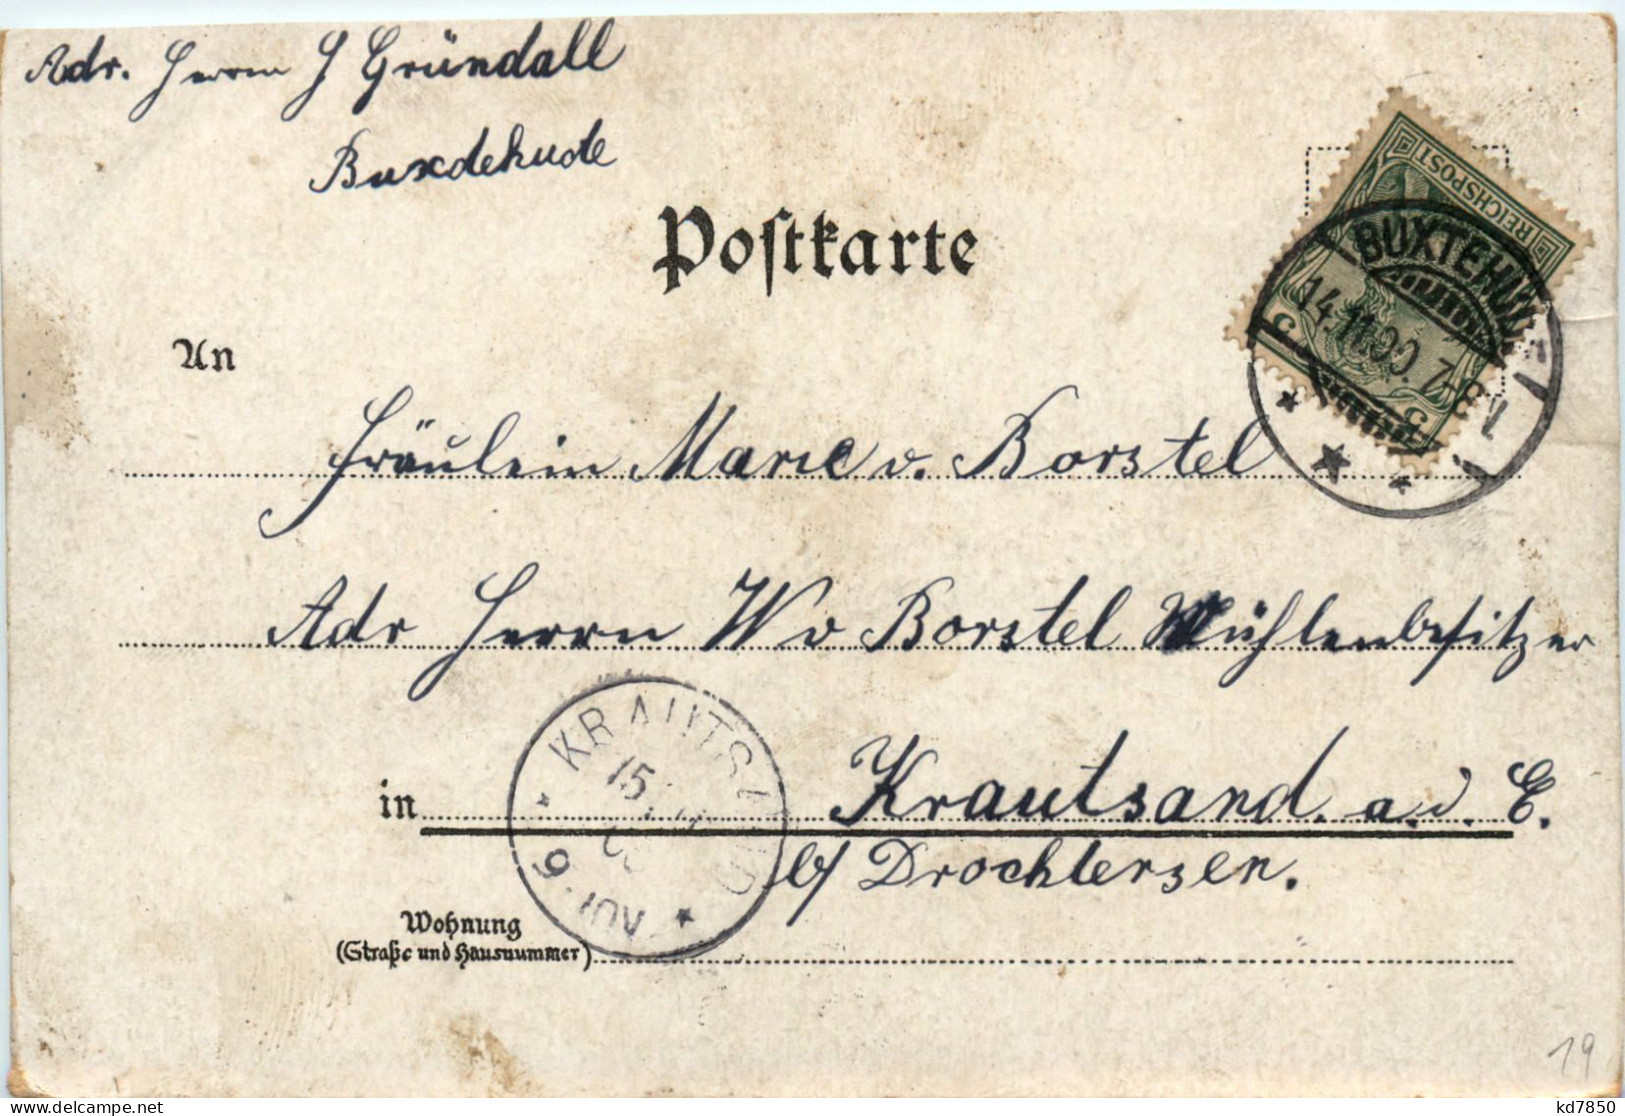 Adr. Herrn J Gründall
Buxdehude
Postkarte
REICHSPOST
BUXTEHUDE
14.11.00. 7-8 V.
An
Fräulein Marie v. Borstel
Adr Herrn W v Borstel Mühlenbesitzer
KRAUTSAND
15
in Krautsand. a. d. E.
b/ Drochtersen.
Wohnung
(Straße und Hausnummer)
19
kd7850